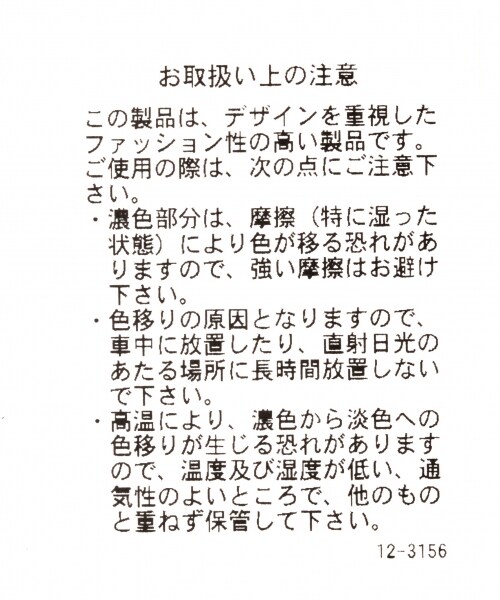 お取扱い上の注意
この製品は、デザインを重視した
ファッション性の高い製品です。
ご使用の際は、次の点にご注意下
さい。
・濃色部分は、摩擦（特に湿った
状態）により色が移る恐れがあ
りますので、強い摩擦はお避け
下さい。
・色移りの原因となりますので、
車中に放置したり、直射日光の
あたる場所に長時間放置しない
で下さい。
・高温により、濃色から淡色への
色移りが生じる恐れがあります
ので、温度及び湿度が低い、通
気性のよいところで、他のもの
と重ねず保管して下さい。
12-3156